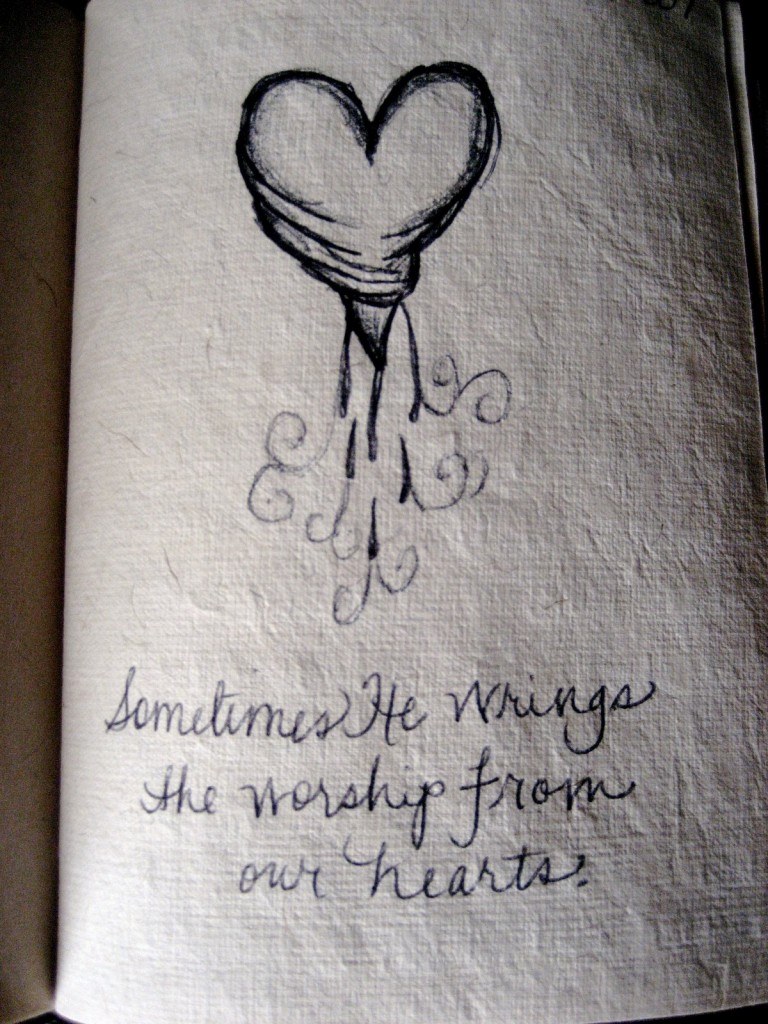 Sometimes He wrings
the worship from
our hearts.